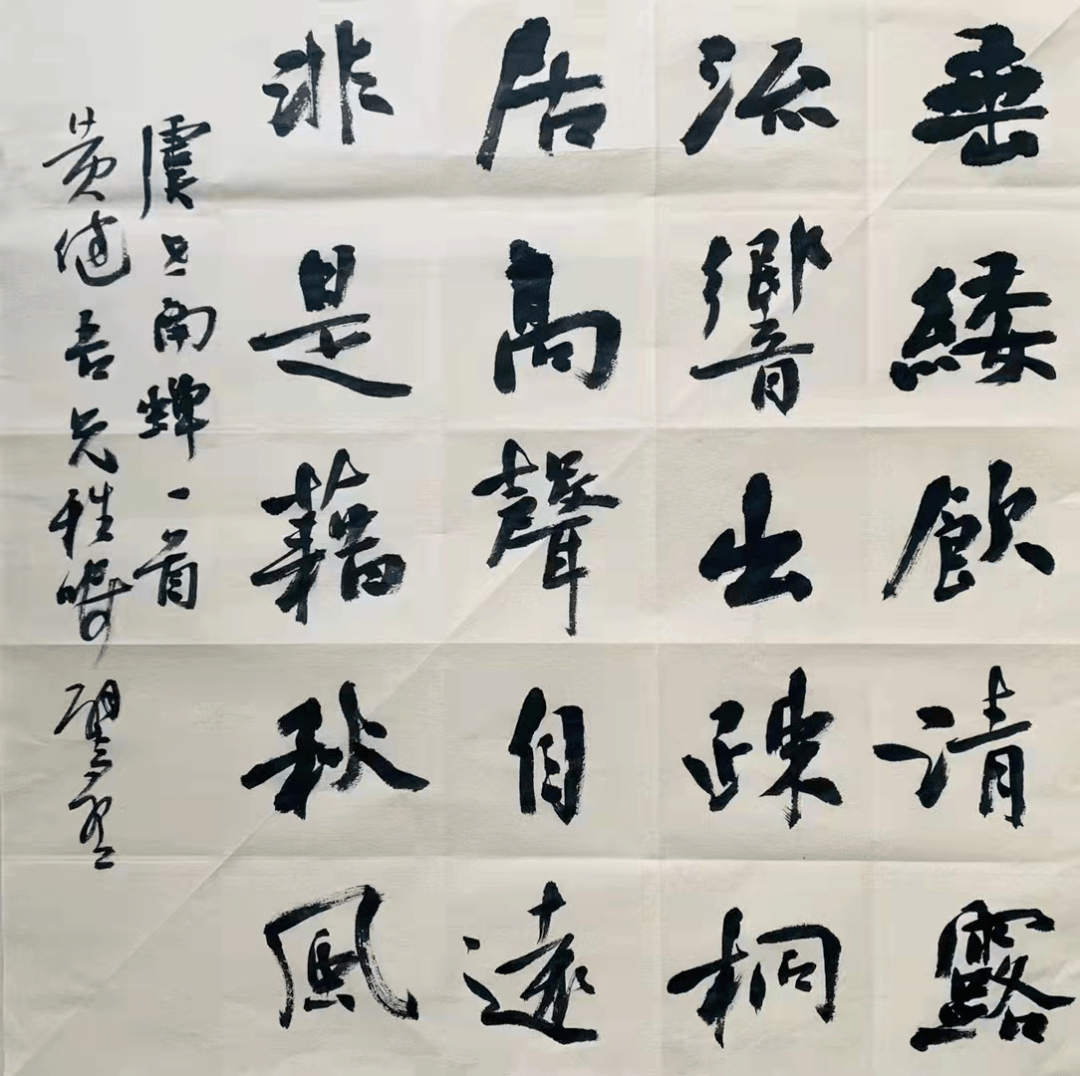 垂緌飲清露
流響出疎桐
居高聲自遠
非是藉秋風
虞世南蟬一首
黄健吾兄雅嘱